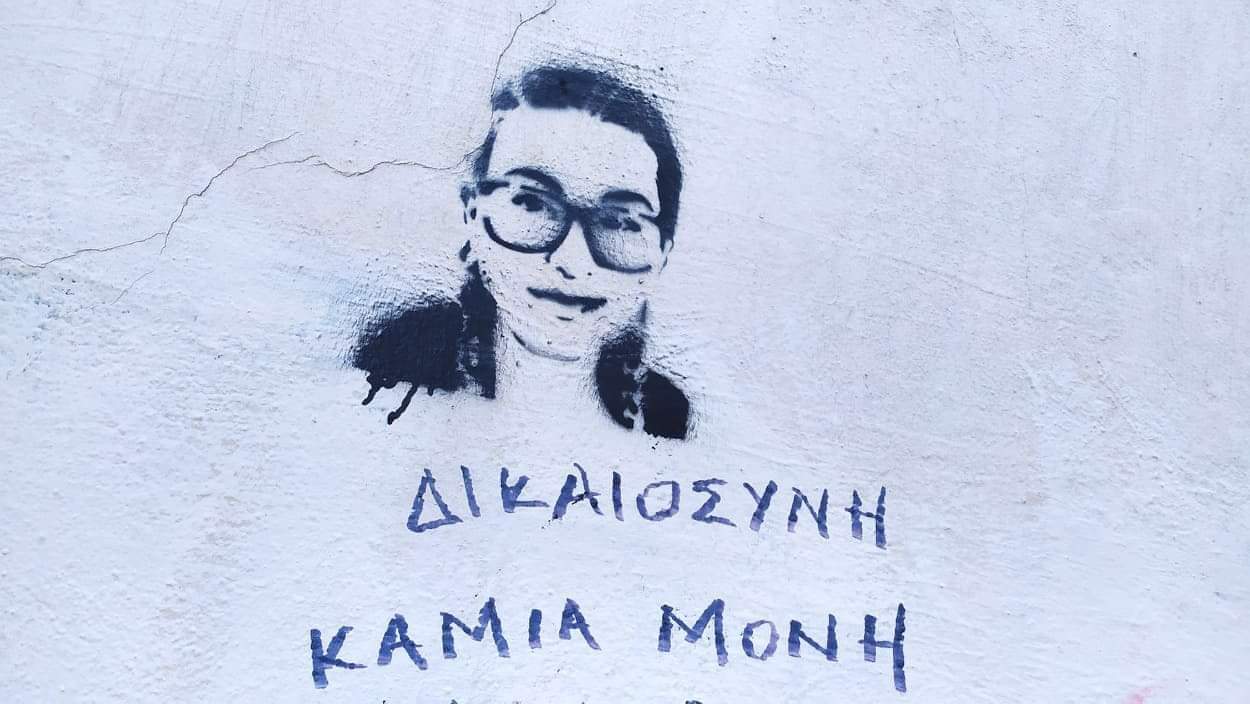 ΔΙΚΑΙΟΣΥΝΗ
ΚΑΜΙΑ ΜΟΝΗ